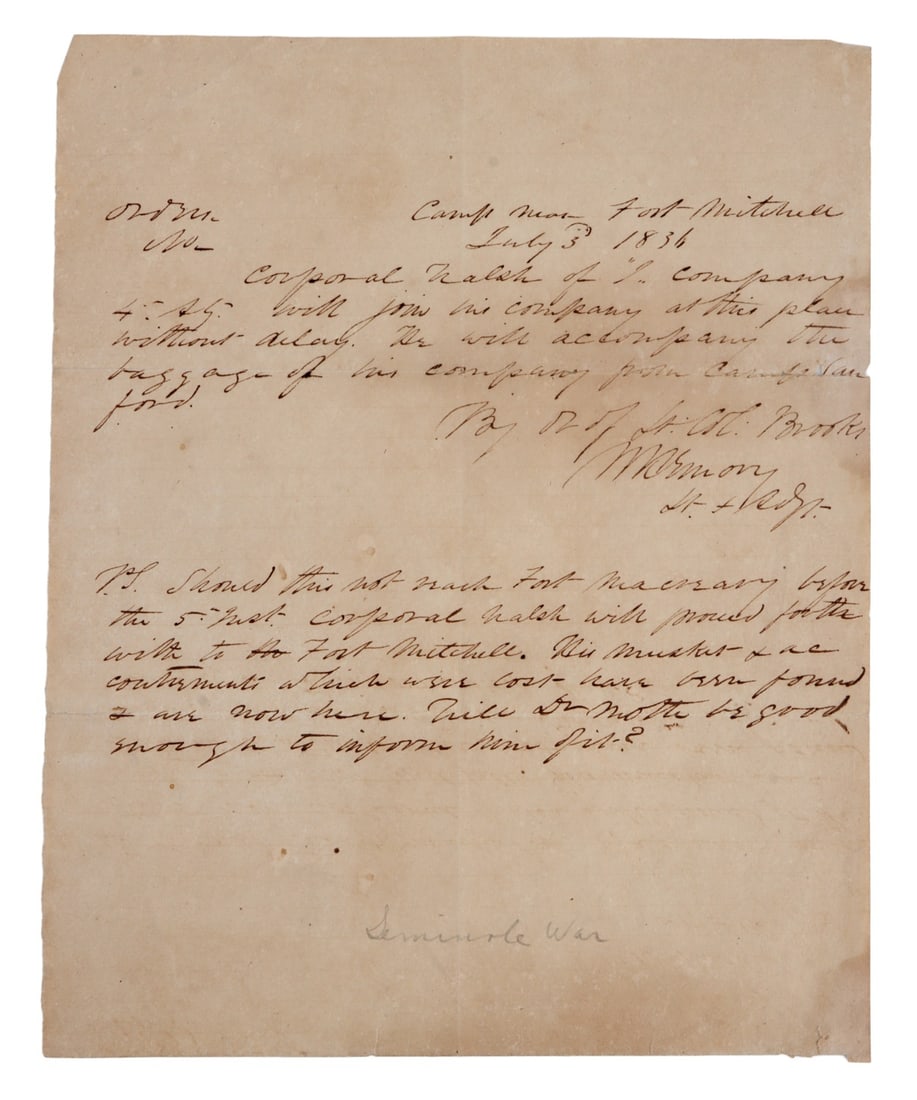 Orders.
No
Camp near Fort Mitchell
July 3d 1836
Corporal Walsh of "I" company
4" Art. will join his company at this place
without delay. He will accompany the
baggage of his company from Camp San
ford.
By or of Lt. Col. Brooks
Lt. & Adjt.
P.S. Should this not reach Fort before
the 5" Inst. Corporal Walsh will proceed forth
with to Fort Mitchell. His musket & ac
coutrements which were lost have been found
& are now here. Will Dr Motte be good
enough to inform him of it?
Seminole War